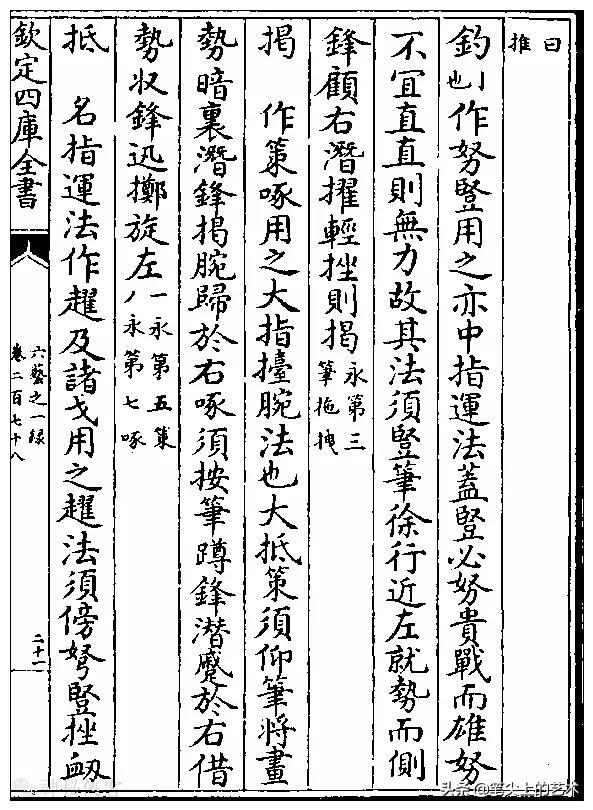 曰
推
釣丨也作努豎用之亦中指運法蓋豎必努貴戰而雄努
不宜直直則無力故其法須豎筆徐行近左就勢而側
鋒顧右潛擢輕挫則揭永第三筆拖拽
揭　作策啄用之大指擡腕法也大抵策須仰筆將畫
勢暗裏潛鋒揭腕歸於右啄須按筆蹲鋒潜蹙於右借
勢收鋒迅擲旋左一永第五策丿永第七啄
抵　名指運法作趯及諸戈用之趯法須傍弩豎挫衂
欽定四庫全書
六藝之一録
卷二百七十八
二十一
头条@笔尖上的艺术